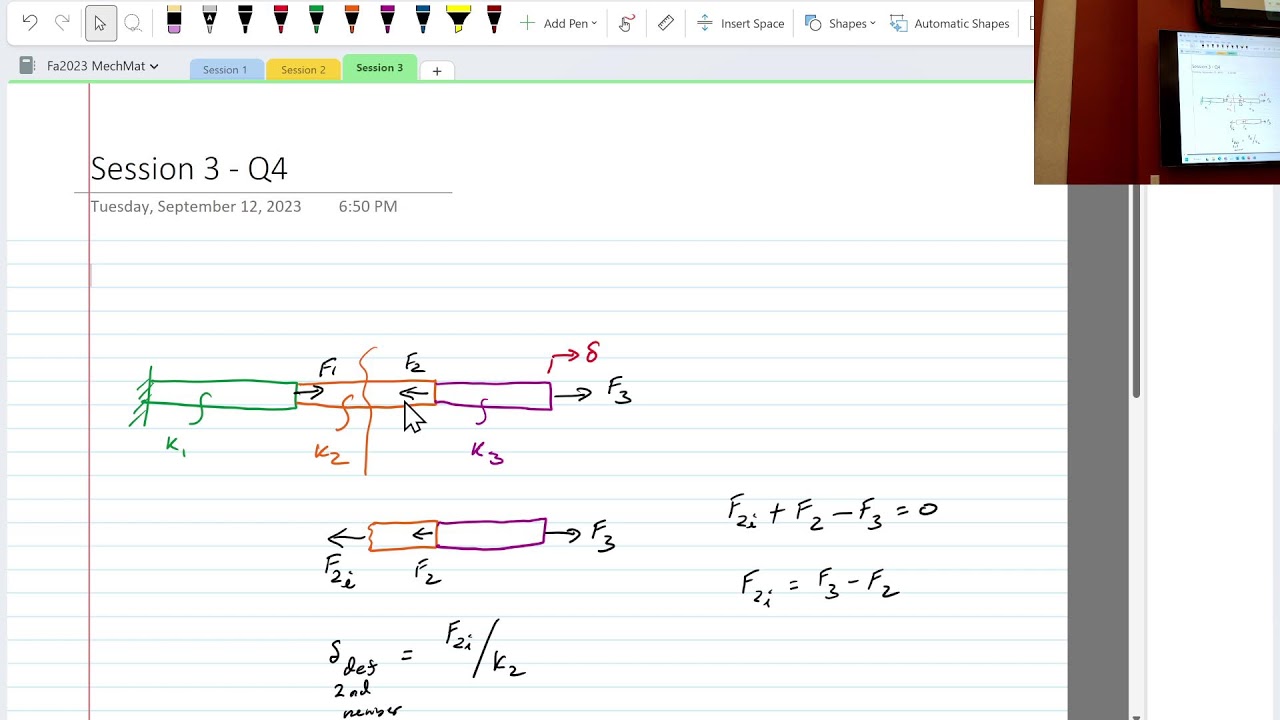 Add Pen
Insert Space
Shapes
Automatic Shapes
Fa2023 MechMat
Session 1
Session 2
Session 3
Session 3 - Q4
Tuesday, September 12, 2023 6:50 PM
F1 F2 δ
F3
K1 K2 K3
F3
F2i F2
F2i + F2 - F3 = 0
F2i = F3 - F2
δdef = F2i/K2
2nd
member